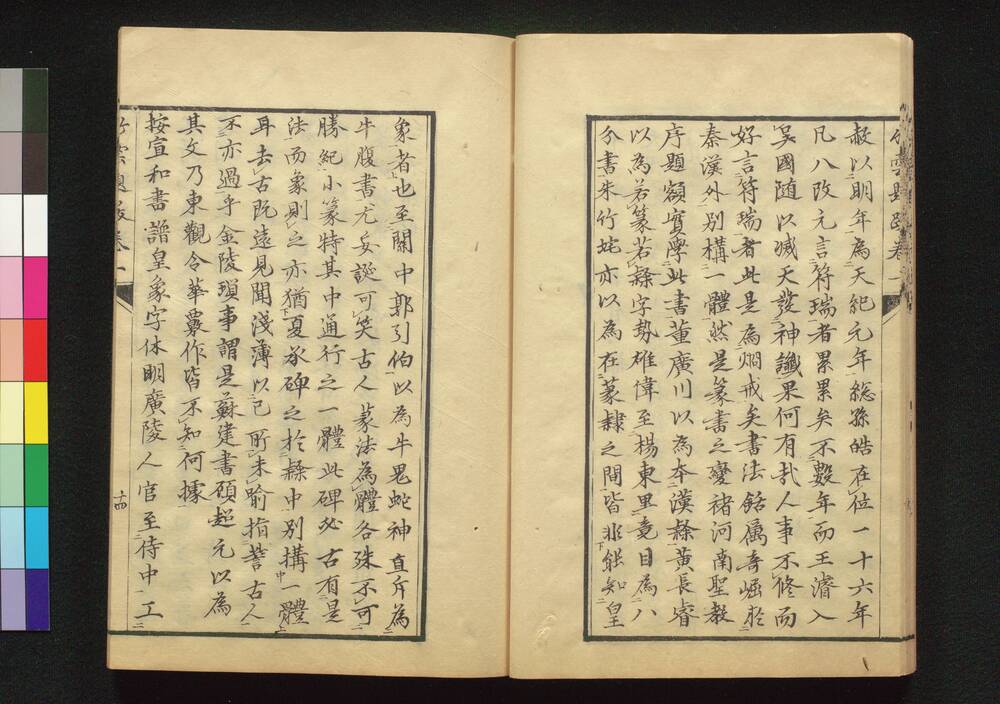 竹雲題跋卷一
赦以明年為天紀元年總孫皓在位一十六年
凡八改元言符瑞者累累矣不數年而王濬入
吳國随以滅天發神讖果何有哉人事不修而
好言符瑞者此是為烱戒矣書法銛厲奇崛於
秦漢外別構一體然是篆書之變褚河南聖教
序題額實學此書董廣川以為本漢隸黃長睿
以為若篆若隸字勢雄偉至楊東里竟目為八
分書朱竹垞亦以為在篆隸之間皆非能知皇
象者也至關中郭引伯以為牛鬼蛇神直斥為
牛腹書尤妄誕可笑古人篆法為體各殊不可
勝紀小篆特其中通行之一體此碑必古有是
法而象則之亦猶夏承碑之於隸中別搆一體
耳去古既遠見聞淺薄以己所未喻指訾古人
不亦過乎金陵瑣事謂是蘇建書碩起元以為
其文乃東觀令華覈作皆不知何據
按宣和書譜皇象字休明廣陵人官至侍中工
竹雲題跋卷一
十四